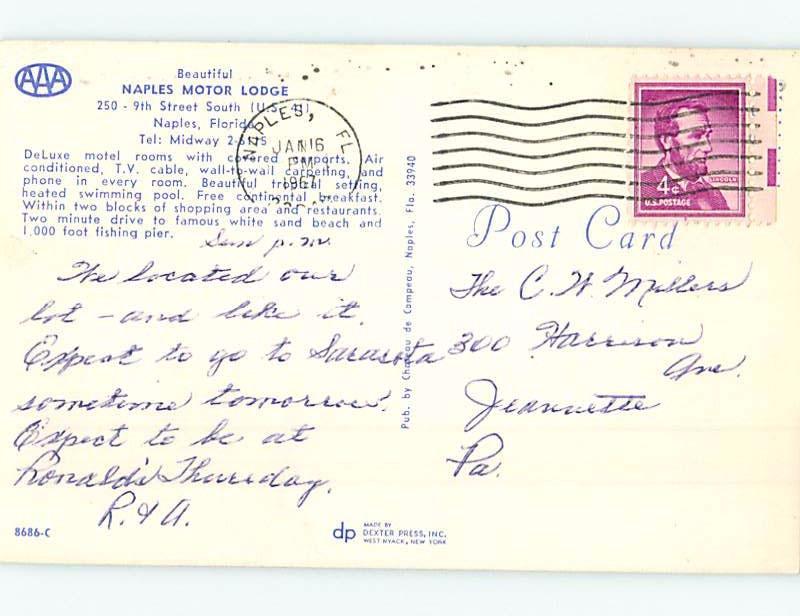 AAA
Beautiful
NAPLES MOTOR LODGE
250 - 9th Street South (U.S. 41)
Naples, Florida
Tel: Midway
DeLuxe motel rooms with covered carports. Air
conditioned, T.V. cable, wall-to-wall carpeting, and
phone in every room. Beautiful tropical setting,
heated swimming pool. Free continental breakfast.
Within two blocks of shopping area and restaurants.
Two minute drive to famous white sand beach and
1,000 foot fishing pier.
NAPLES, FL
JAN 16
PM
1967
LINCOLN
4c
U.S. POSTAGE
Post Card
Sun p.m.
We located our
lot - and like it.
Expect to go to Sarasota
sometime tomorrow.
Expect to be at
Ronald's Thursday.
R. & A.
The C. W. Millers
300 Harrison
Ave.
Jeannette
Pa.
Pub. by Chateau de Campeau, Naples, Fla. 33940
8686-C
dp
MADE BY
DEXTER PRESS, INC.
WEST NYACK, NEW YORK